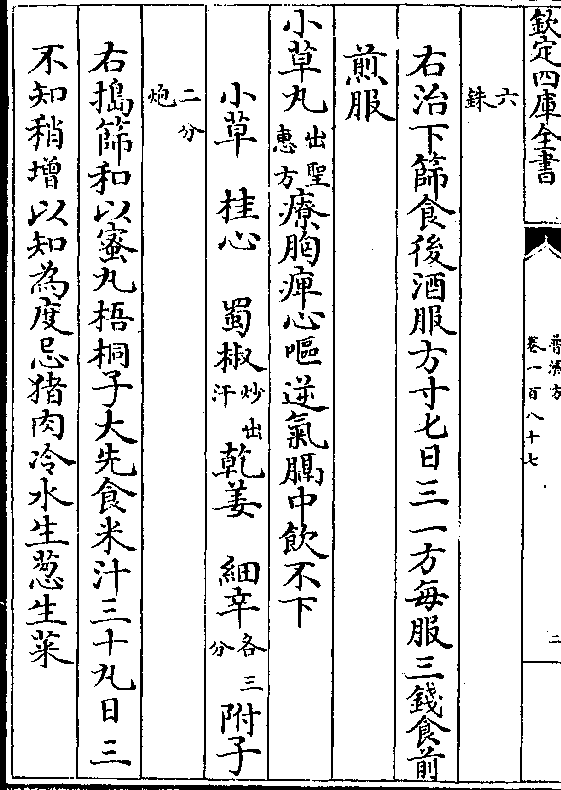 欽定四庫全書
普濟方
卷一百八十七
二
六銖
右治下篩食後酒服方寸七日三一方每服三錢食前
煎服
小草丸出聖惠方療胸痺心嘔逆氣膈中飲不下
小草 桂心 蜀椒炒出汗 乾姜 細辛各三分 附子
二分炮
右搗篩和以蜜丸梧桐子大先食米汁三十丸日三
不知稍增以知為度忌猪肉冷水生葱生菜